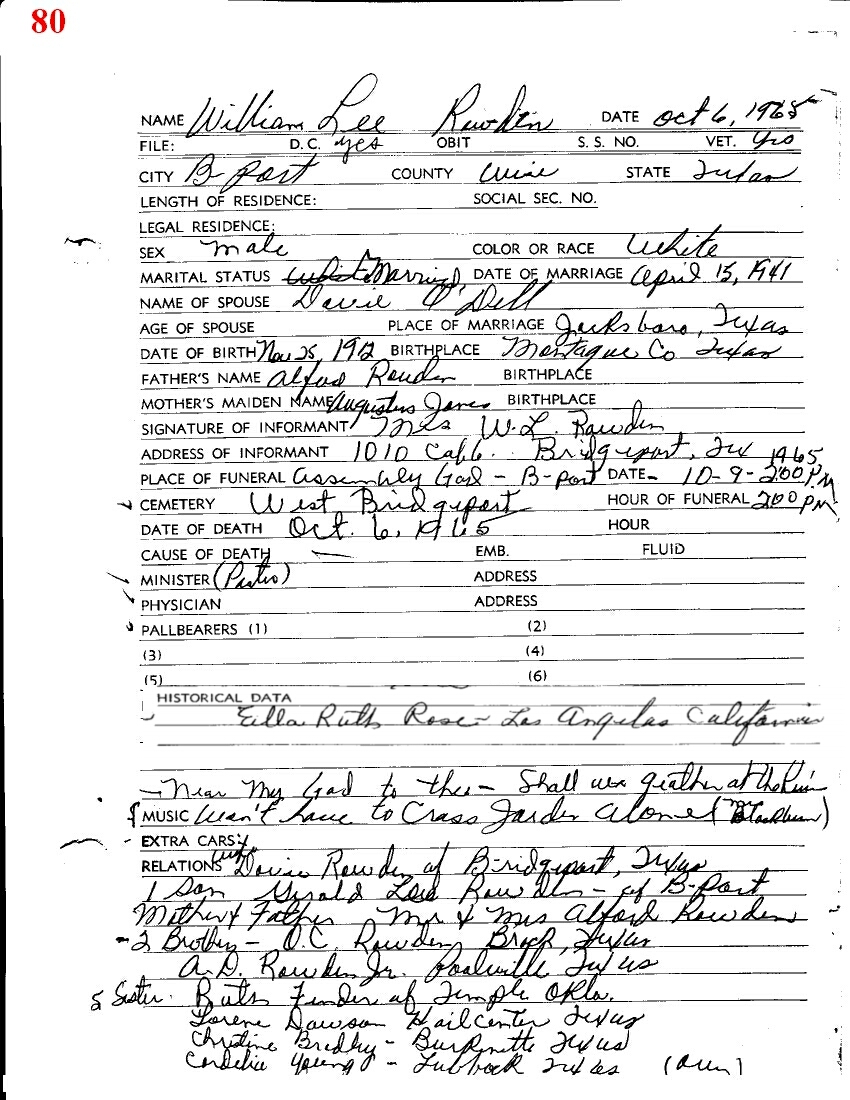 80
NAME William Lee Rowden DATE Oct 6, 1965
FILE: D.C. yes OBIT S. S. NO. VET. Yes
CITY B-port COUNTY Wise STATE Texas
LENGTH OF RESIDENCE: SOCIAL SEC. NO.
LEGAL RESIDENCE:
SEX male COLOR OR RACE White
MARITAL STATUS Married DATE OF MARRIAGE April 15, 1941
NAME OF SPOUSE Dovie O'Dell
AGE OF SPOUSE PLACE OF MARRIAGE Jacksboro, Texas
DATE OF BIRTH Nov 25, 1912 BIRTHPLACE Montague Co Texas
FATHER'S NAME Alford Rowden BIRTHPLACE
MOTHER'S MAIDEN NAME Augustus Jones BIRTHPLACE
SIGNATURE OF INFORMANT Mrs W.L. Rowden
ADDRESS OF INFORMANT 1010 Cobb. Bridgeport, Tex 1965
PLACE OF FUNERAL Assembly God - B-port DATE- 10-9-2:00 P.M
CEMETERY West Bridgeport HOUR OF FUNERAL 2:00 PM
DATE OF DEATH Oct. 6, 1965 HOUR
CAUSE OF DEATH — EMB. FLUID
MINISTER ADDRESS
PHYSICIAN ADDRESS
PALLBEARERS (1) (2)
(3) (4)
(5) (6)
HISTORICAL DATA
Ella Ruth Rose - Los Angelas California
- Near My God to thee - Shall we gather at the River
MUSIC Won't have to Cross Jorden Alone (Mrs Blackburn)
EXTRA CARS:
RELATIONS wife Dovie Rowden of Bridgeport, Texas
1 Son Gerald Lee Rowden - of B-Port
Mother & Father Mr & Mrs Alford Rowden
- 2 Brothers - O.C. Rowden, Brock, Texas
A.D. Rowden Jr. Poolville Texas
5 Sister. Ruth Fender of Temple Okla.
Lorene Dawson Hailcenter Texas
Christine Bradley - Burknette Texas
Cordelia Young - Lubbock Texas (Over)